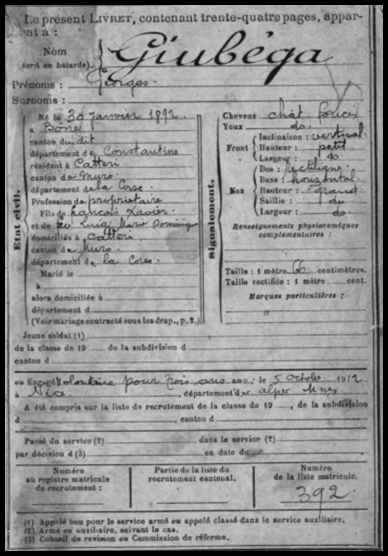 Le présent LIVRET, contenant trente-quatre pages, appartient à :
Nom
(écrit en bâtarde). Giubéga
Prénoms : Georges.
Surnoms :
État civil.
Né le 30 janvier 1892
à Bone
canton du dit
département de Constantine
résidant à Catteri
canton de Muro
département de la Corse
Profession de propriétaire
Fils de François Xavier
et de feu Luigi Marie Dominique
domiciliés à Catteri
canton de Muro
département de la Corse
Marié le
à
alors domiciliée à
département d
(Voir mariage contracté sous les drap., p. 2.)
Signalement.
Cheveux chât. foncés
Yeux do
Front
Inclinaison : vertical
Hauteur : petit
Largeur : do
Nez
Dos : rectiligne
Base : horizontal
Hauteur : grand
Saillie : do
Largeur : do
Renseignements physionomiques
complémentaires :
Taille : 1 mètre 66 centimètres.
Taille rectifiée : 1 mètre cent.
Marques particulières :
Jeune soldat (1)
de la classe de 19 de la subdivision d
canton d
ou Engagé Volontaire pour trois ans, le 5 Octobre 1912
à Nice, département des alpes Mmes
A été compris sur la liste de recrutement de la classe de 19 , de la subdivision
d , canton d
Passé du service (2) dans le service (2)
par décision d (3) en date du
Numéro
au registre matricule
du recrutement :
Partie de la liste du
recrutement cantonal.
Numéro
de la liste matricule.
392
(1) Appelé bon pour le service armé ou appelé classé dans le service auxiliaire.
(2) Armé ou auxiliaire, suivant le cas.
(3) Conseil de revision ou Commission de réforme.